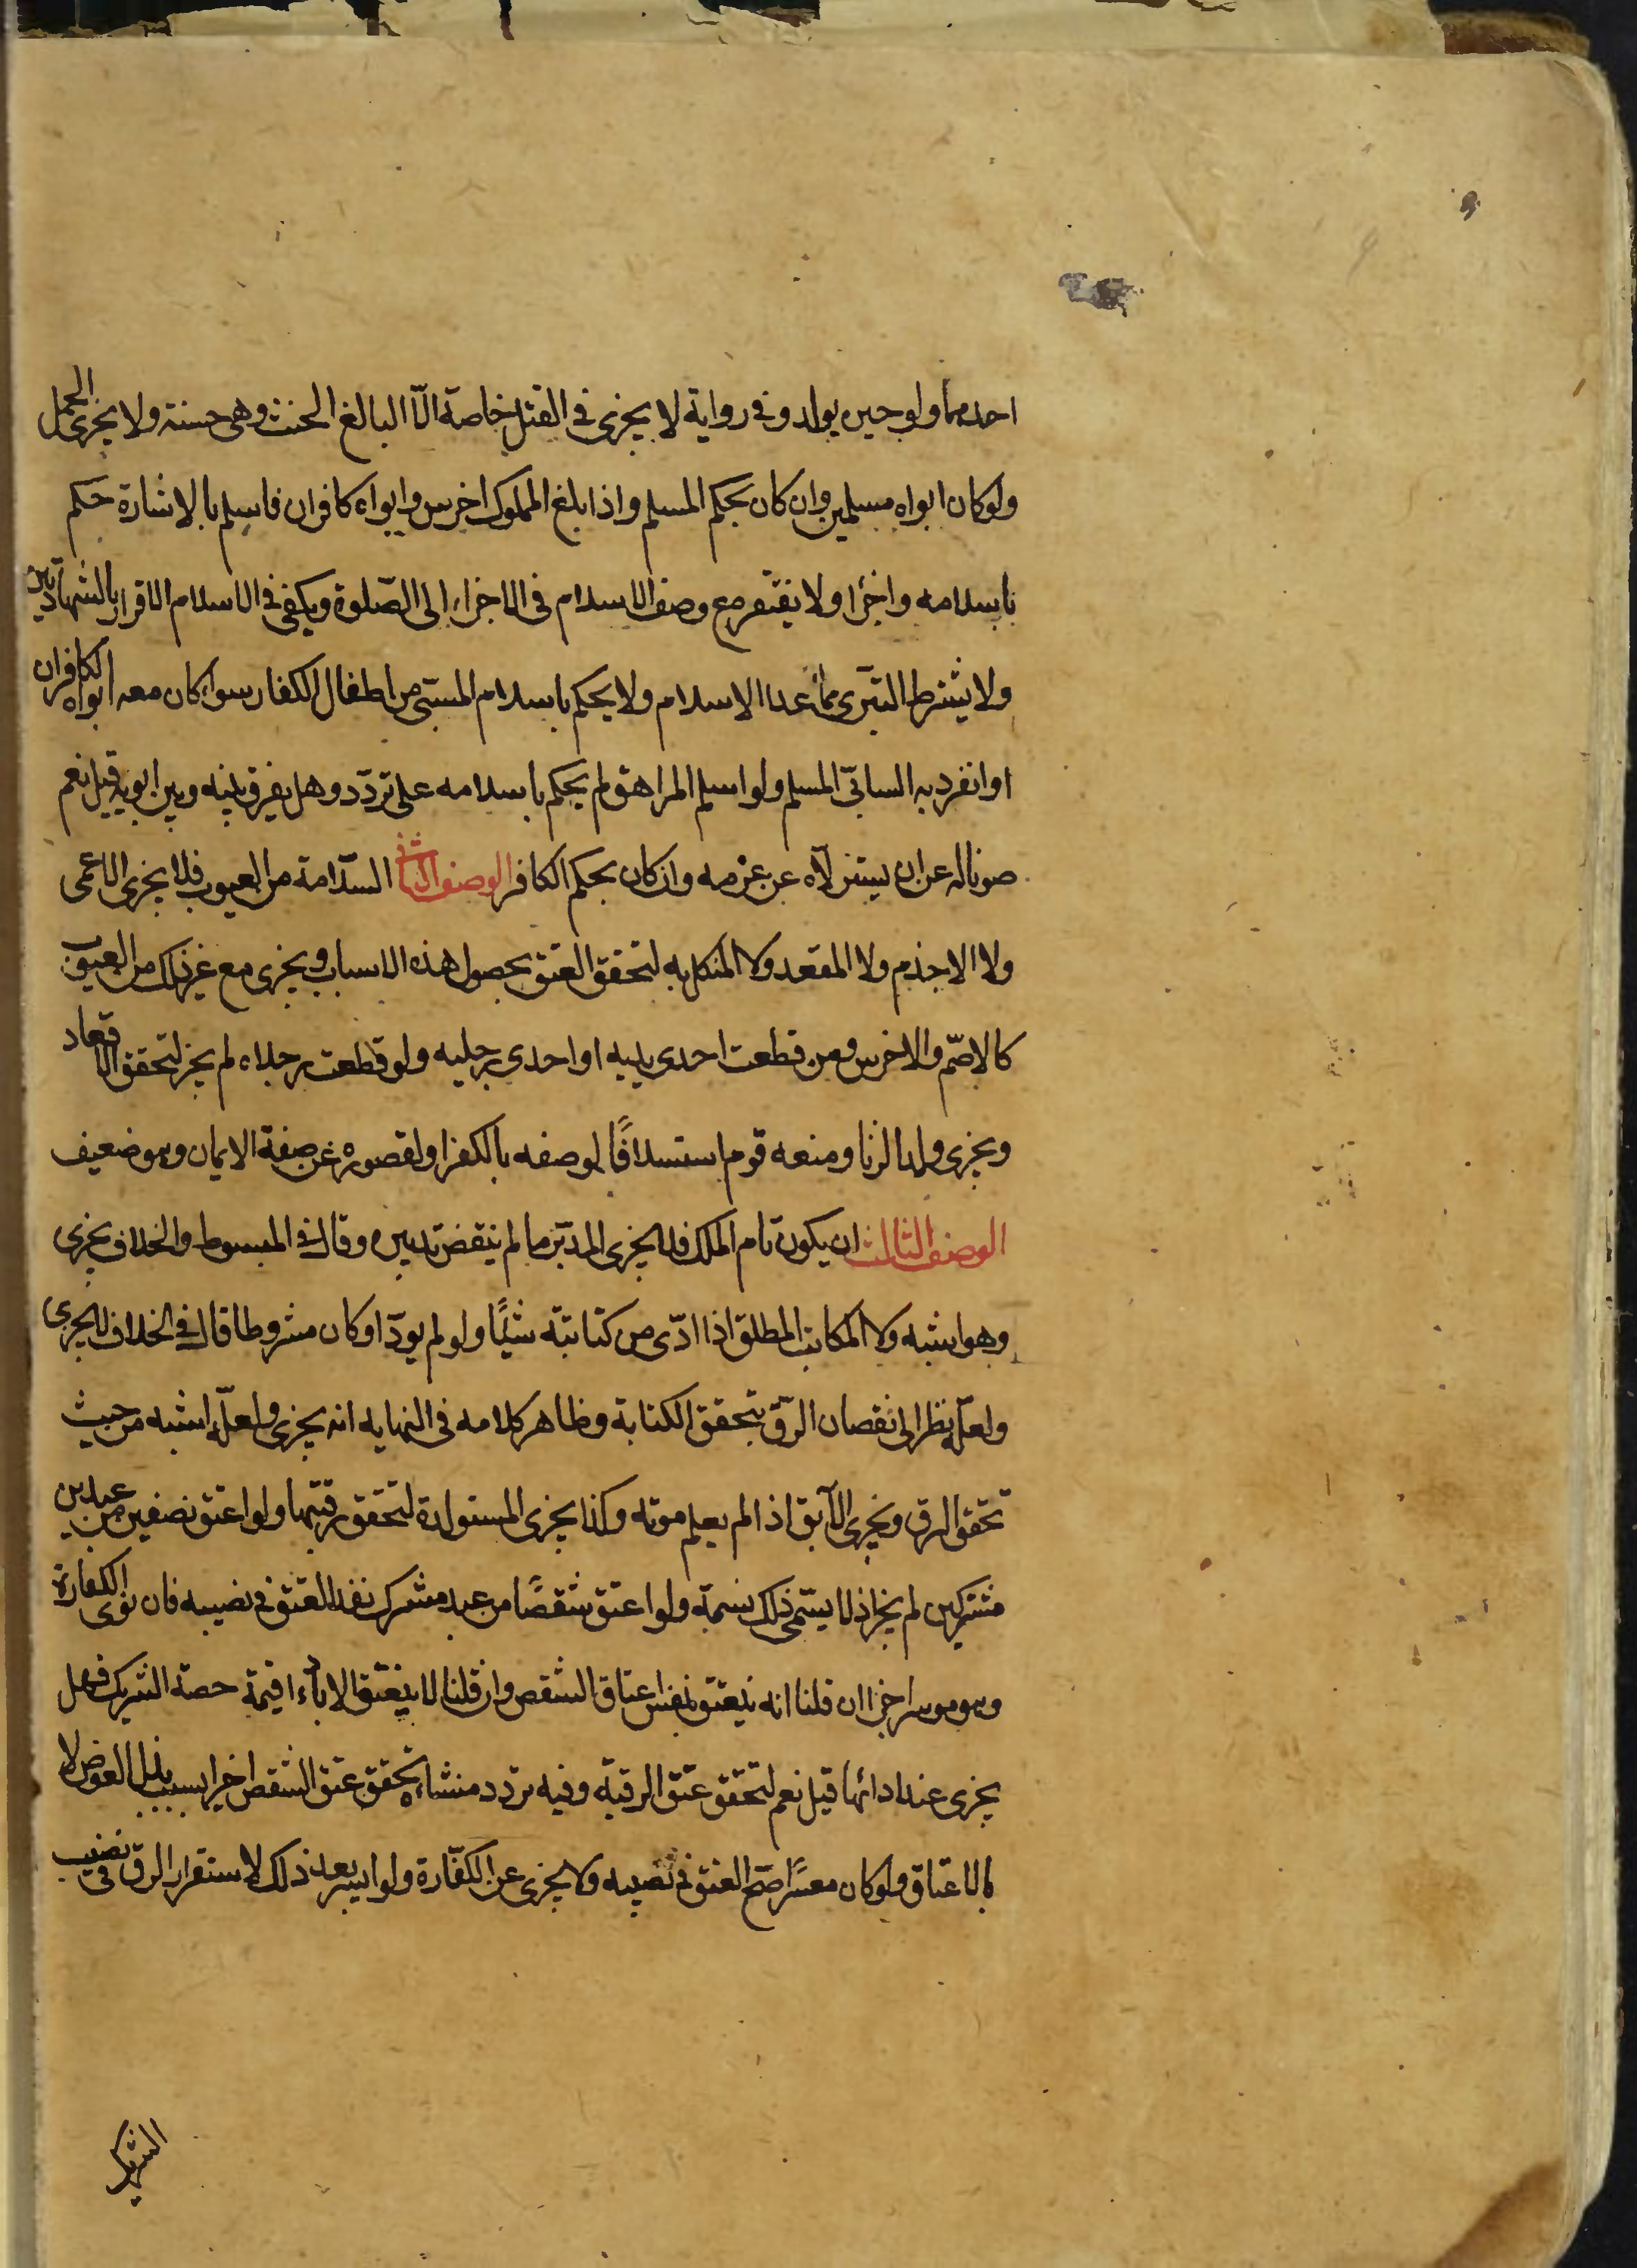 احدهما ولو حين يولد وفي رواية لا يجزى في القتل خاصة الّا البالغ الحنث وهي حسنة ولا يجزى الحمل
ولو كان ابواه مسلمين وان كان بحكم المسلم واذا بلغ المملوك اخرس وابواه كافران فاسلم بالاشارة حكم
باسلامه واجزا ولا يفتقر مع وصف الاسلام في الاجزاء الى الصّلوة ويكفى في الاسلام الاقرار بالشهادتين
ولا يشترط التبرى مما عدا الاسلام ولا يحكم باسلام المسبّى من اطفال الكفار سواء كان معه ابواه الكافران
او انفرد به السابّى المسلم ولو اسلم المراهق لم يحكم باسلامه على تردّد وهل يفرق بينه وبين ابويه قيل نعم
صونا له عن ان يستزلّاه عن عزمه وان كان بحكم الكافر الوصف الثانى السّلامة من العيوب فلا يجزى الاعمى
ولا الاجذم ولا المقعد ولا المنكل به لتحقق العتق بحصول هذه الاسباب ويجزى مع غير ذلك من العيوب
كالاصّم والاخرس ومن قطعت احدى يديه او احدى رجليه ولو قطعت رجلاه لم يجز لتحقق الاقعاد
ويجزى ولد الزنا ومنعه قوم استسلافًا لوصفه بالكفر او لقصوره عن صفة الايمان وهو ضعيف
الوصف الثالث ان يكون تام الملك فلا يجزى المدبّر ما لم ينقض تدبيره وقال في المبسوط والخلاف يجزى
وهو اشبه ولا المكاتب المطلق اذا ادّى من كتابته شيئًا ولو لم يودّ او كان مشروطا قال في الخلاف لا يجزى
ولعلّه نظر الى نقصان الرّق بتحقق الكتابة وظاهر كلامه في النهايه انه يجزى ولعلّه اشبه من حيث
تحقق الرق ويجزى الآبق اذا لم يعلم موته وكذا يجزى المستولدة لتحقق رقيّتها ولو اعتق نصفين من عبدين
مشتركين لم يجز اذ لا يسّمى ذلك نسمة ولو اعتق شقصًا من عبد مشترك نفذ العتق في نصيبه فان نوى الكفارة
وهو موسر اجزا ان قلنا انه ينعتق بنفس اعتاق الشقص وان قلنا لا ينعتق الا باداء قيمة حصة الشريك فهل
يجزى عند ادائها قيل نعم لتحقق عتق الرقبة وفيه تردد منشاؤه تحقق عتق الشقص اخيرا بسبب بذل العوض لا
بالاعتاق ولو كان معسرًا صحّ العتق في نصيبه ولا يجزى عن الكفّارة ولو ايسر بعد ذلك لاستقرار الرق في نصيب
الشريك